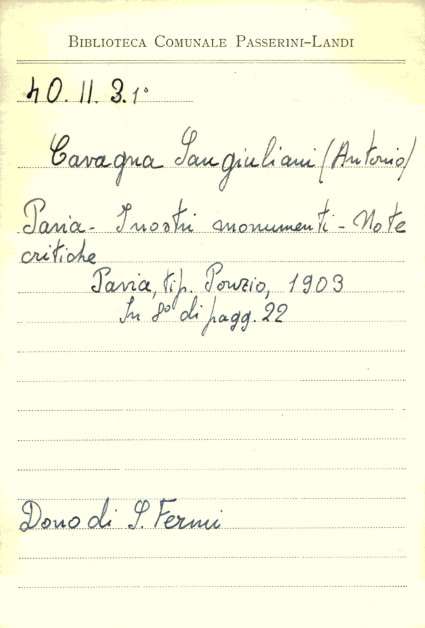 BIBLIOTECA COMUNALE PASSERINI-LANDI
40. II. 3. 1°
Cavagna Sangiuliani (Antonio)
Pavia - I nostri monumenti - Note
critiche
Pavia, tip. Ponzio, 1903
In 8° di pagg. 22
Dono di S. Fermi